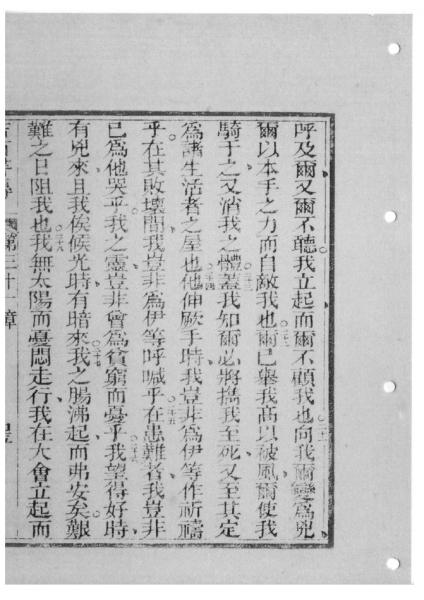 呼及爾又爾不聽我立起而爾不顧我也向我爾變為兇
爾以本手之力而自敵我也爾已舉我高以被風爾使我
騎于之又消我之體蓋我知爾必將攜我至死又至其定
爲諸生活者之屋也他伸厥手時我豈非爲伊等作祈禱
乎在其敗壞間我豈非爲伊等呼喊乎在患難者我豈非
已爲他哭乎我之靈豈非會爲貧窮而憂乎我望得好時
有兇來且我俟候光時有暗來我之腸沸起而弗安矣艱
難之日阻我也我無太陽而憂悶走行我在大會立起而
第三十章